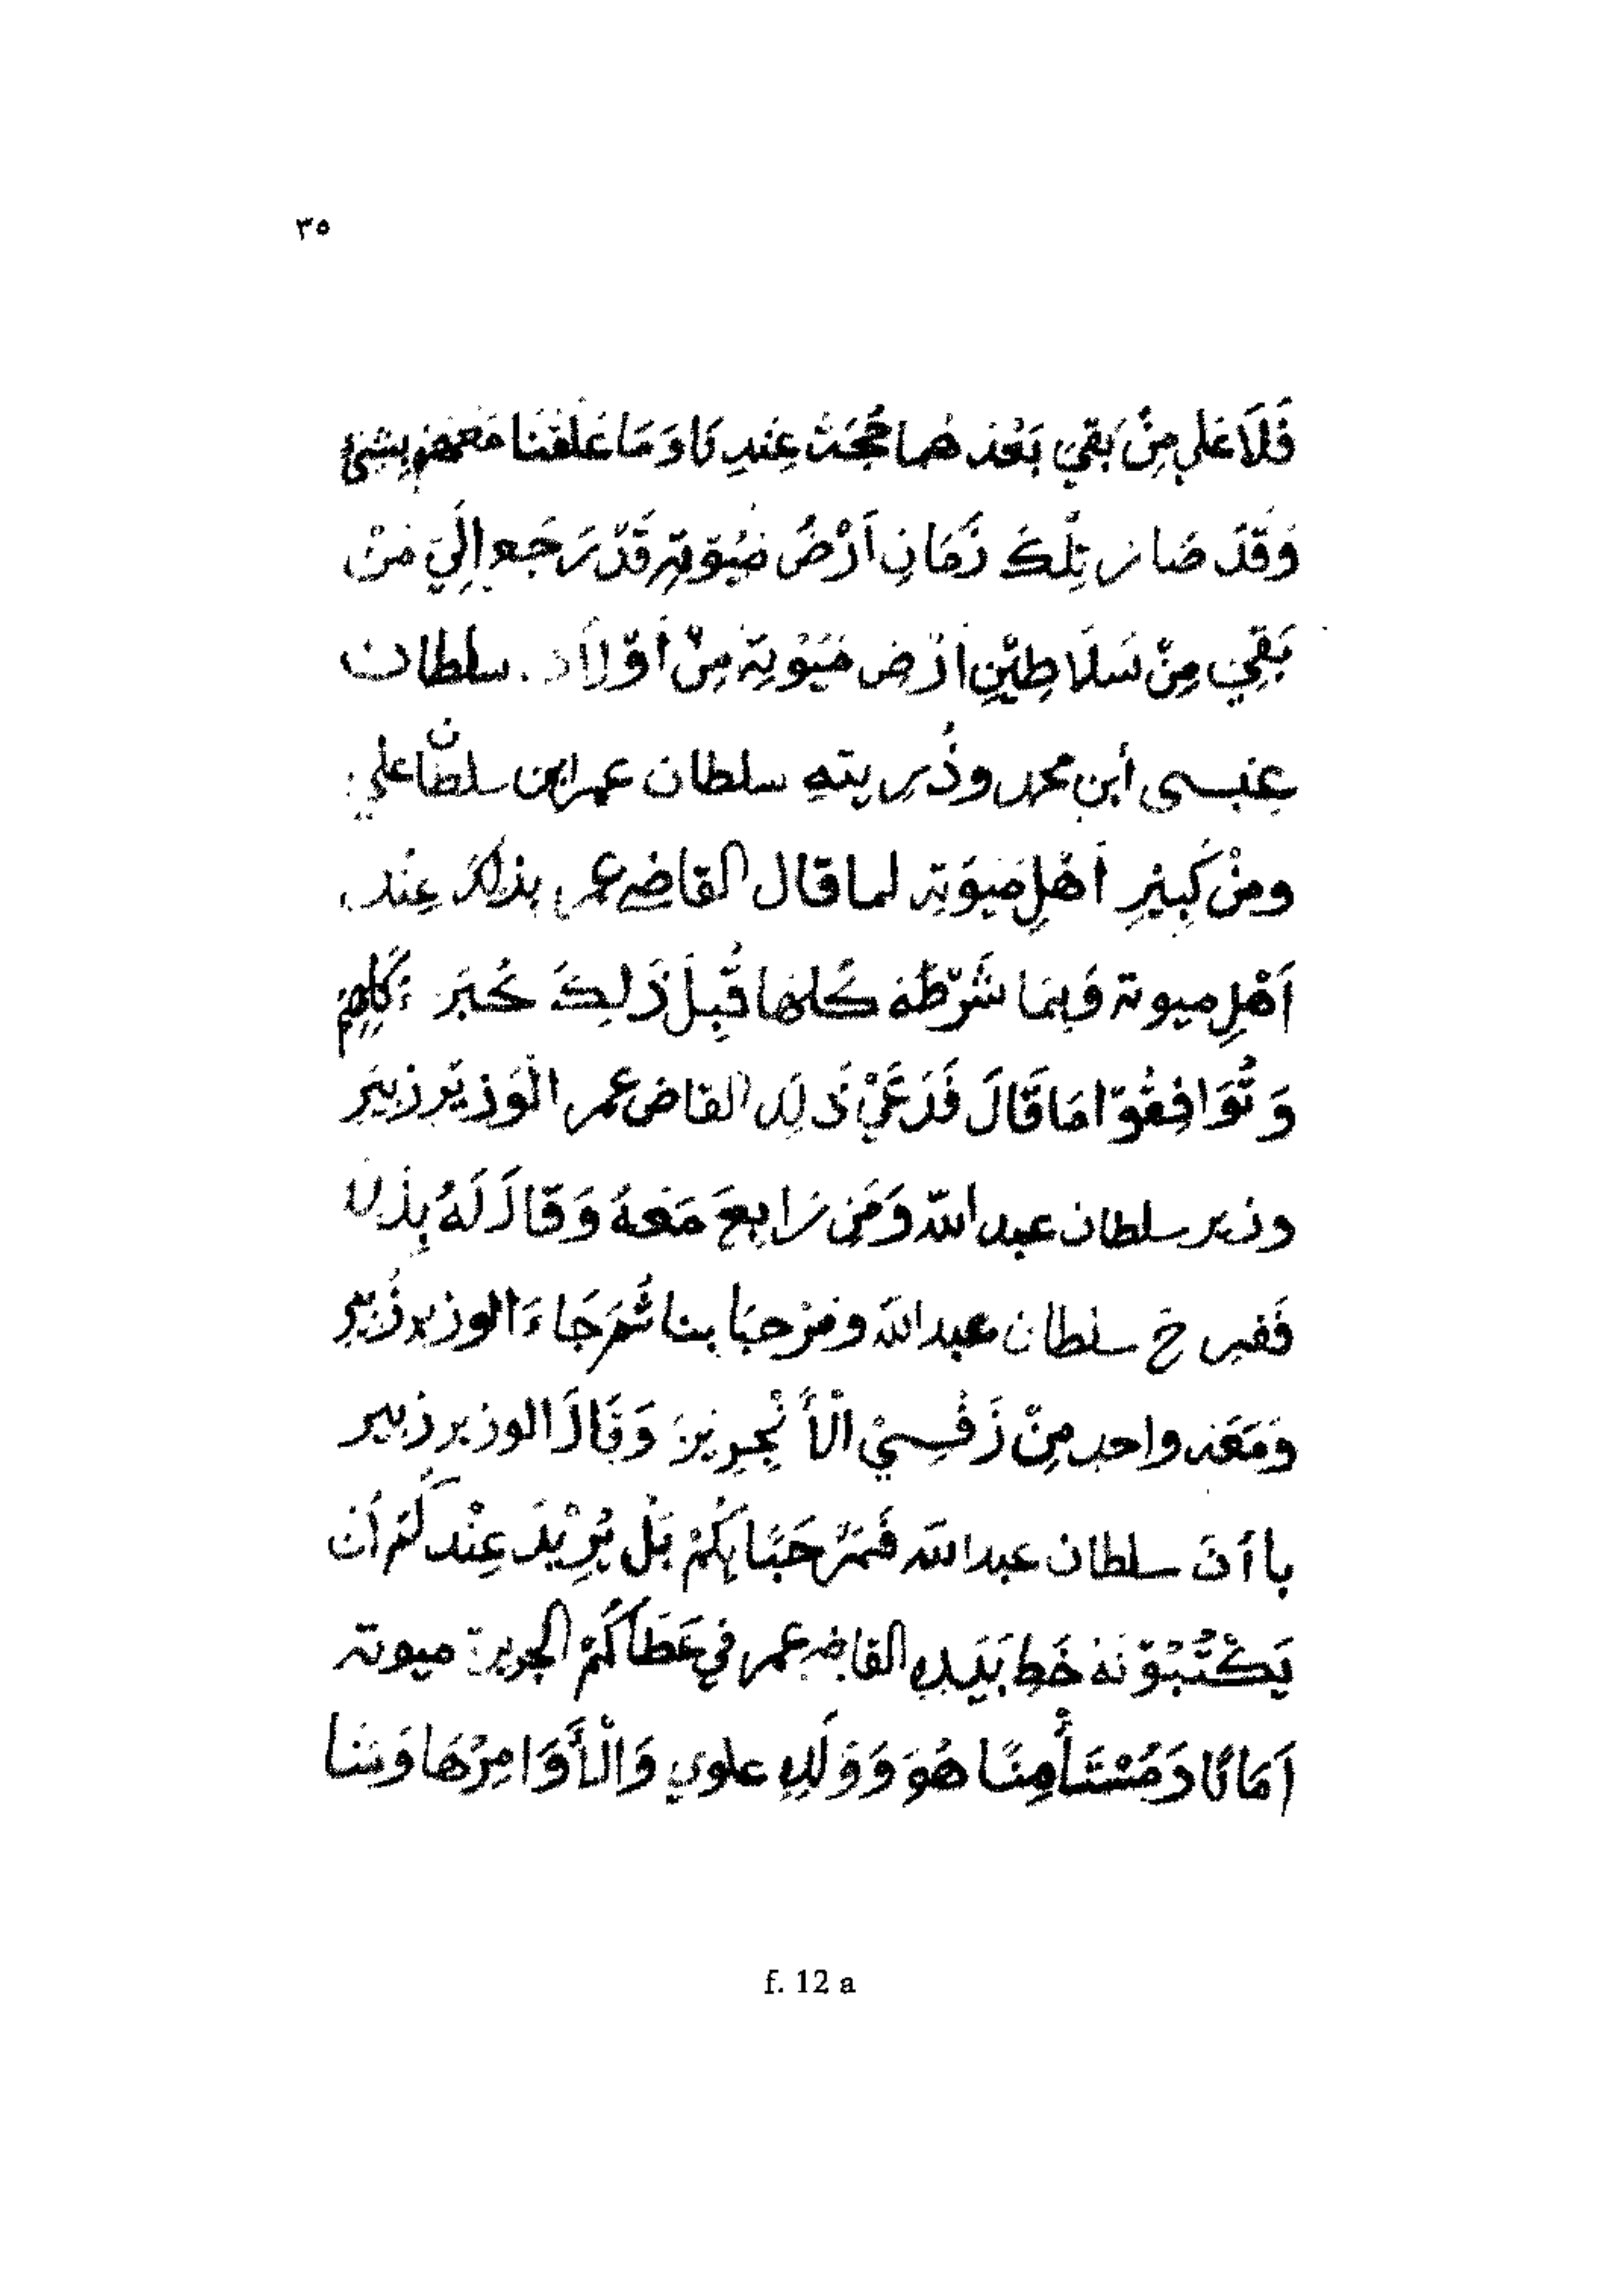 ٣٥
فَلَا عَلي مِنْ بَقي بَعْدهُما حُجَتْ عِنْدِنَا وَمَا عَلَقْنَا مَعَهُمْ بِشَيْئ
وَقَدْ صَارَ تِلْكَ زَمَانِ اَرْضُ مَيُوْتِة قَدْ رَجَع اِلَيَ مَنْ
بَقِيَ مِنْ سَلَاطِيْنِ اَرْضِ مَيُوْتِة مِنْ أَوْلَاد سلطان
عِيسى أبن محمد وذُرِيتهِ سلطان عمر ابن سلطان علي
ومِنْ كَبِيْرِ أَهْلِ مَيُوَتِة لما قال القاضي عمر بذلك عِنْد
اَهْلِ مِيوتة وَبِمَا شَرْطَهُ كلها قَبِلَ ذَلِكَ كُبَرَءَ كَلِهِمْ
وَتُوَافِقُوْا مَا قَالَ فَدَعَيْ ذَلِكَ القاض عمر الْوَزيَر زبيَر
وزير سلطان عبد الله وَمَن رَابِعَ مَعَهُ وَقَالَ لَهُ بِذَلك
فَفَرِحَ سلطان عبد الله ومَرْحبَا بنا ثُمَ جَاءَ الوزير زُبَيْر
وَمَعَهُ واحد مِنْ زَفْسِيْ الْأَنْجِرِيْزِ وَقَالَ الوزير زبير
با أنَ سلطان عبد الله فَمَرْحَبًا بِكُمْ بَلْ يُرِيْدَ عِنْدكُمْ أَن
يَكْتُبُوْنَهُ خَطِ بَيَدِهِ القاضي عمر في عَطَاكُمْ الجزيرة ميوتة
اَمَانًا وَمُسْتَأْمِنًا هُوَ وَوَلَدِهِ علوي وَالْأَوَامِرْهَا وَمَنا
f. 12 a